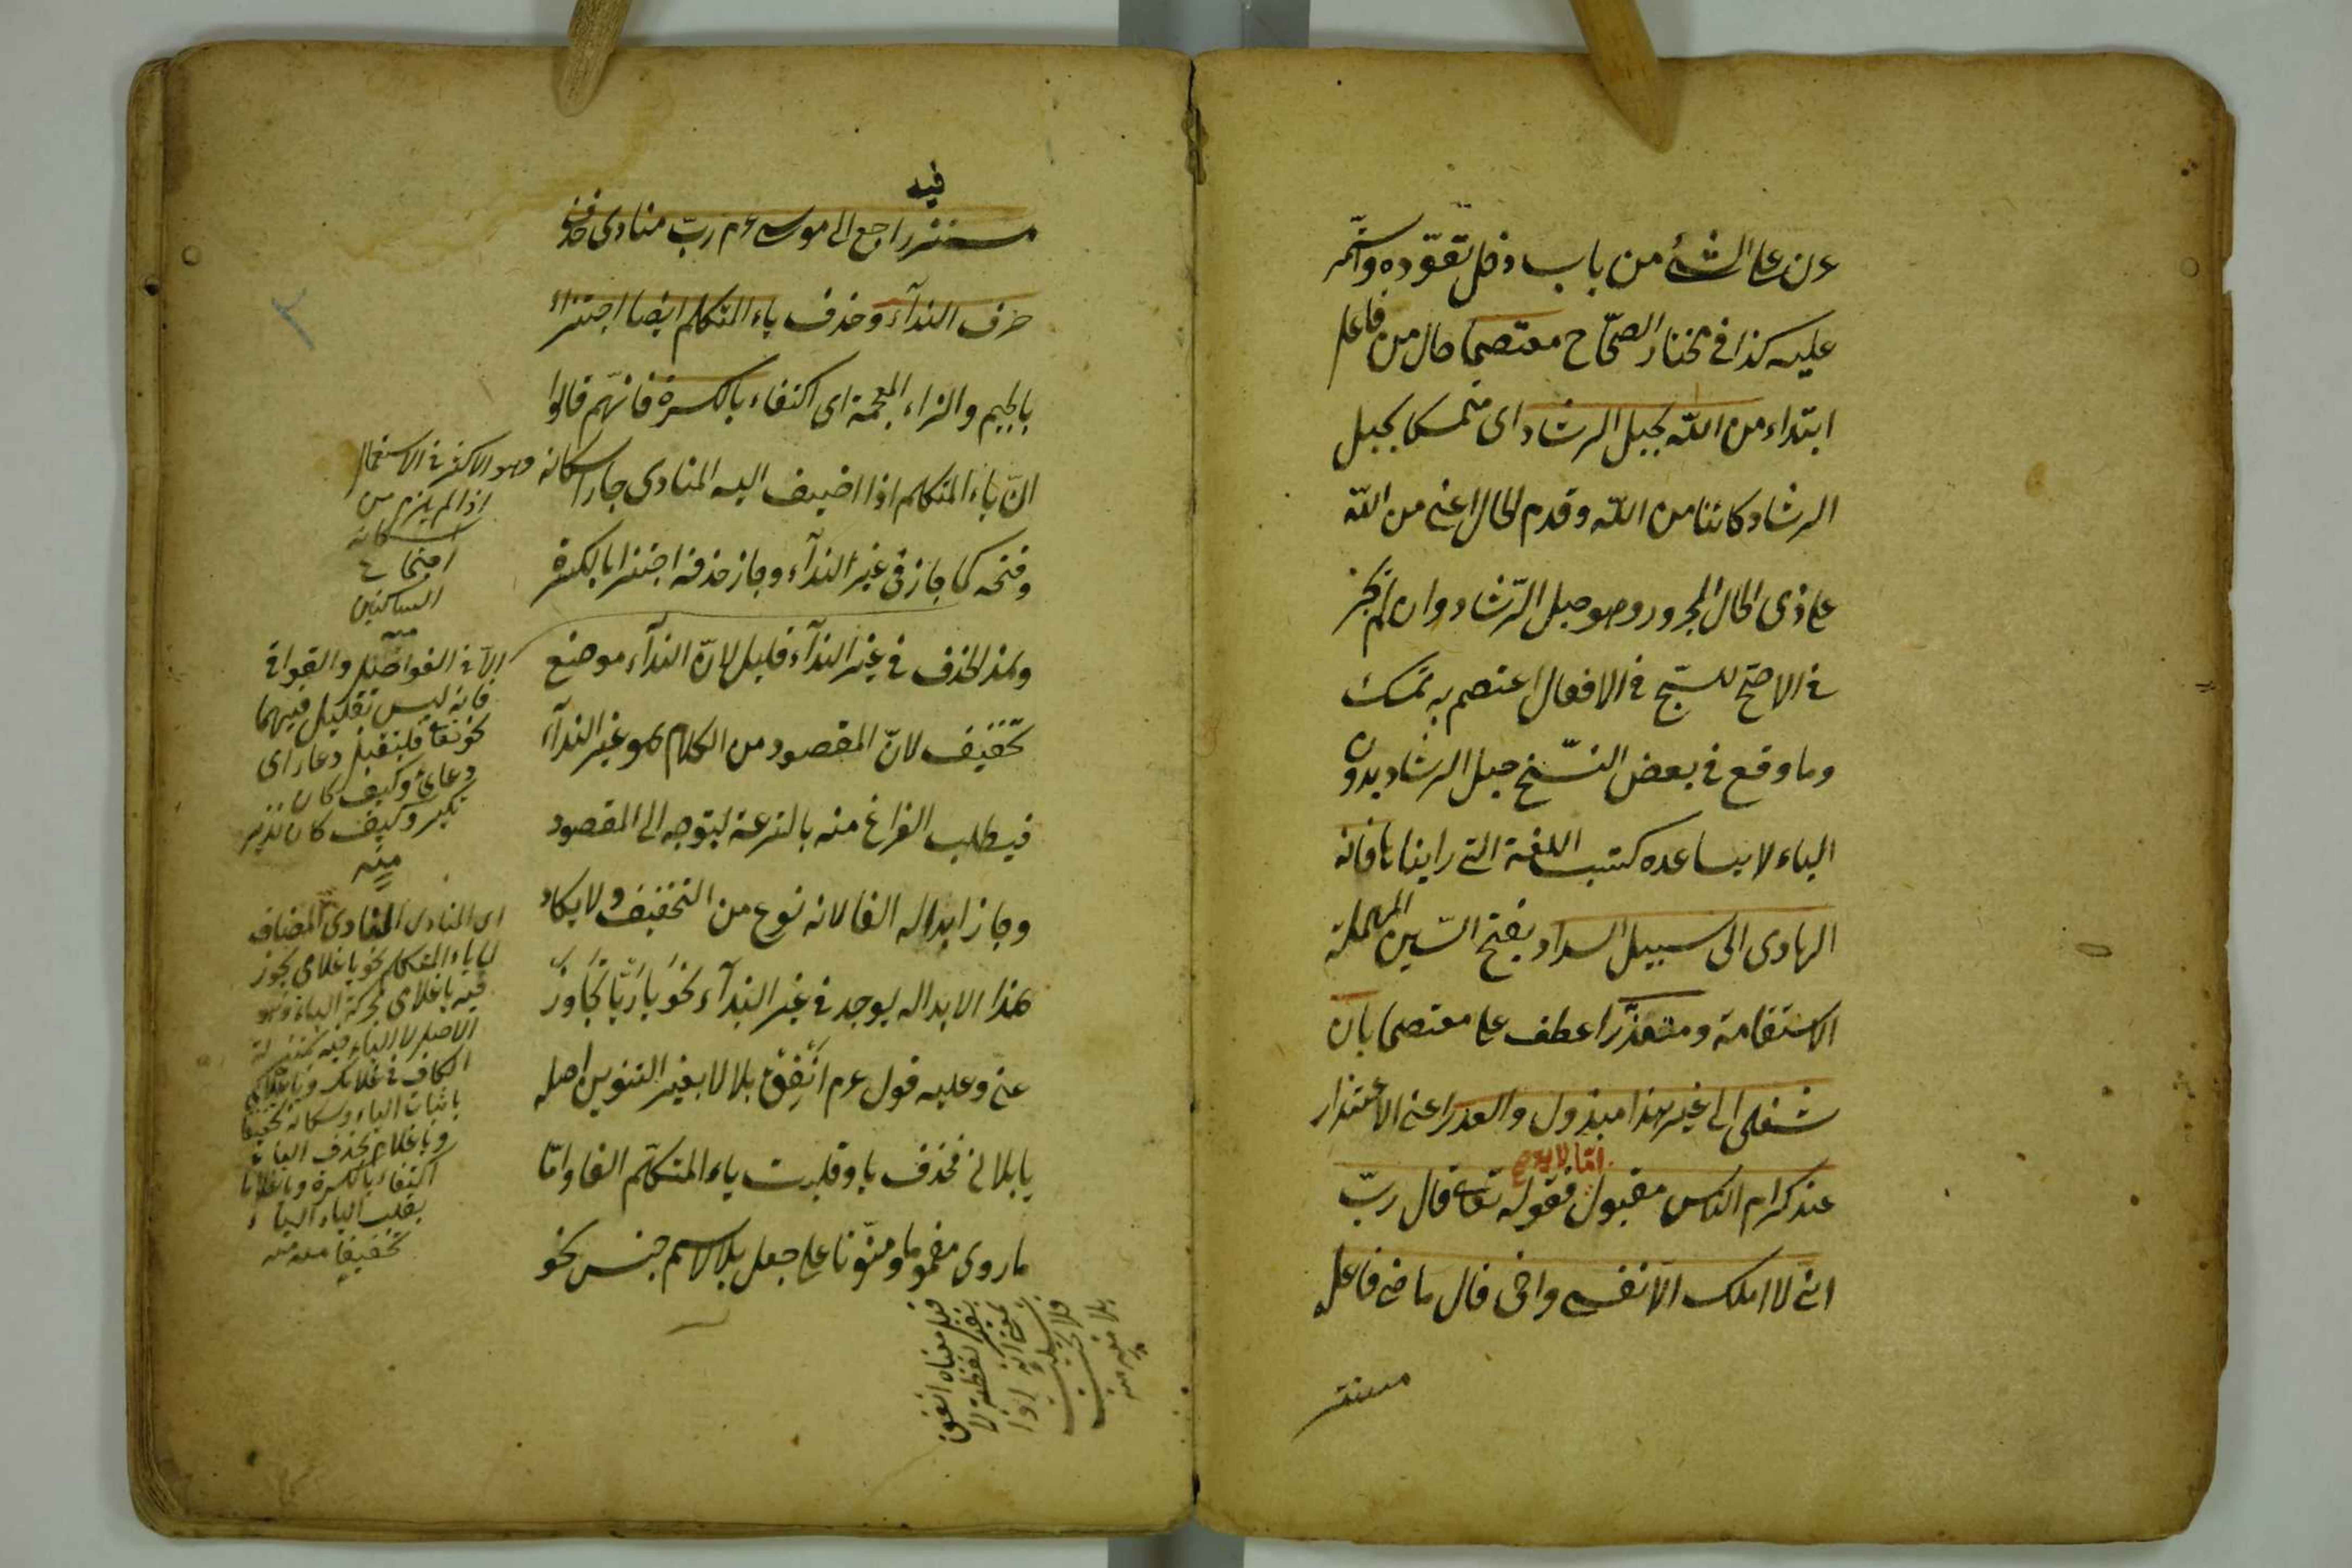 عرن على الشئ من باب دخل تعوّده واستمرّ
عليه كذا فى مختار الصحّاح معتصما حال من فاعل
ابتداء من الله بحبل الرشاد اى متمسكا بحبل
الرشاد كائنا من الله وقدم الحال اعنى من الله
على ذى الحال المجرور وهو حبل الرّشاد وان لم يجز
فى الاصح للسجع فى الافعال اعتصم به تمسك
وما وقع فى بعض النسّخ حبل الرشاد بدون
الباء لا يساعده كتب اللغة التى رايناها فانه
الهادى الى سبيل السداد بفتح السّين المهملة
الاستقامة ومتعذّرا عطف على معتصما بان
شغلى الى غير هذا مبذول والعذر اعنى الاعتذار
عند كرام الناس مقبول فقوله تعالى قال ربّ
انى لا املك الا نفسى واخى قال ماضى فاعله
مستتر
فيه
مستتر راجع الى موسى ع م ربّ منادى حذف
حرف النداء وحذف ياء المتكلم ايضا اجتزاء
بالجيم والزاء المعجمة اى اكتفاء بالكسرة فانهّم قالوا
انّ ياء المتكلم اذا اضيف اليه المنادى جاز اسكانه
وفتحه كما جاز فى غير النداء وجاز حذفه اجتزاء بالكسرة
وهذا الحذف فى غير النداء قليل لانّ النداء موضع
تخفيف لانّ المقصود من الكلام هو غير النداء
فيطلب الفراغ منه بالسرعة ليتوجه الى المقصود
وجاز ابداله الفا لانه نوع من التخفيف ولا يكاد
هذا الابدال يوجد فى غير النداء نحو يا ربّا تجاوز
عنى وعليه قول ع م انفق بلالا بغير التنوين اصله
يا بلالى فحذف يا وقلبت ياء المتكلّم الفا وامّا
ما روى مضموما ومنوّنا على جعل بلال اسم جنس نحو
وهو الاكثر فى الاستعمال
اذا لم يلزم من
اسكانه
اجتماع
الساكنين
منه
الاّ فى الفواصل والقوافى
فانه ليس بقليل فيهما
نحو وتقبل دعاء اى
دعائى وكيف كان
نكير وكيف كان نذير
منه
اى المنادى المضاف
الى ياء المتكلم نحو يا غلامى يجوز
فيه يا غلامى بحركة الياء وهو
الاصل لان الياء فيه بمنزلة
الكاف فى غلامك ويا غلامى
باثبات الياء وسكانه تخفيفا
ويا غلام بحذف الياء
اكتفاء بالكسرة ويا غلاما
بقلب الياء الفا
تخفيفا منه